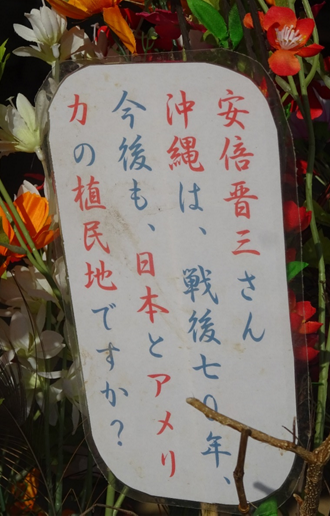 安倍晋三さん
沖縄は、戦後七〇年、
今後も、日本とアメリ
カの植民地ですか?